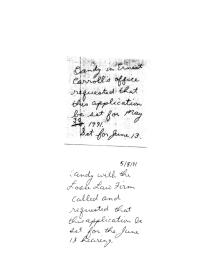 Candy in Ernest
Carroll's office
requested that
this application
be set for May
30, 1991.
Set for June 13.
5/8/91
Candy with the
Law Firm
called and
requested that
this application be
set for the June
13 hearing.